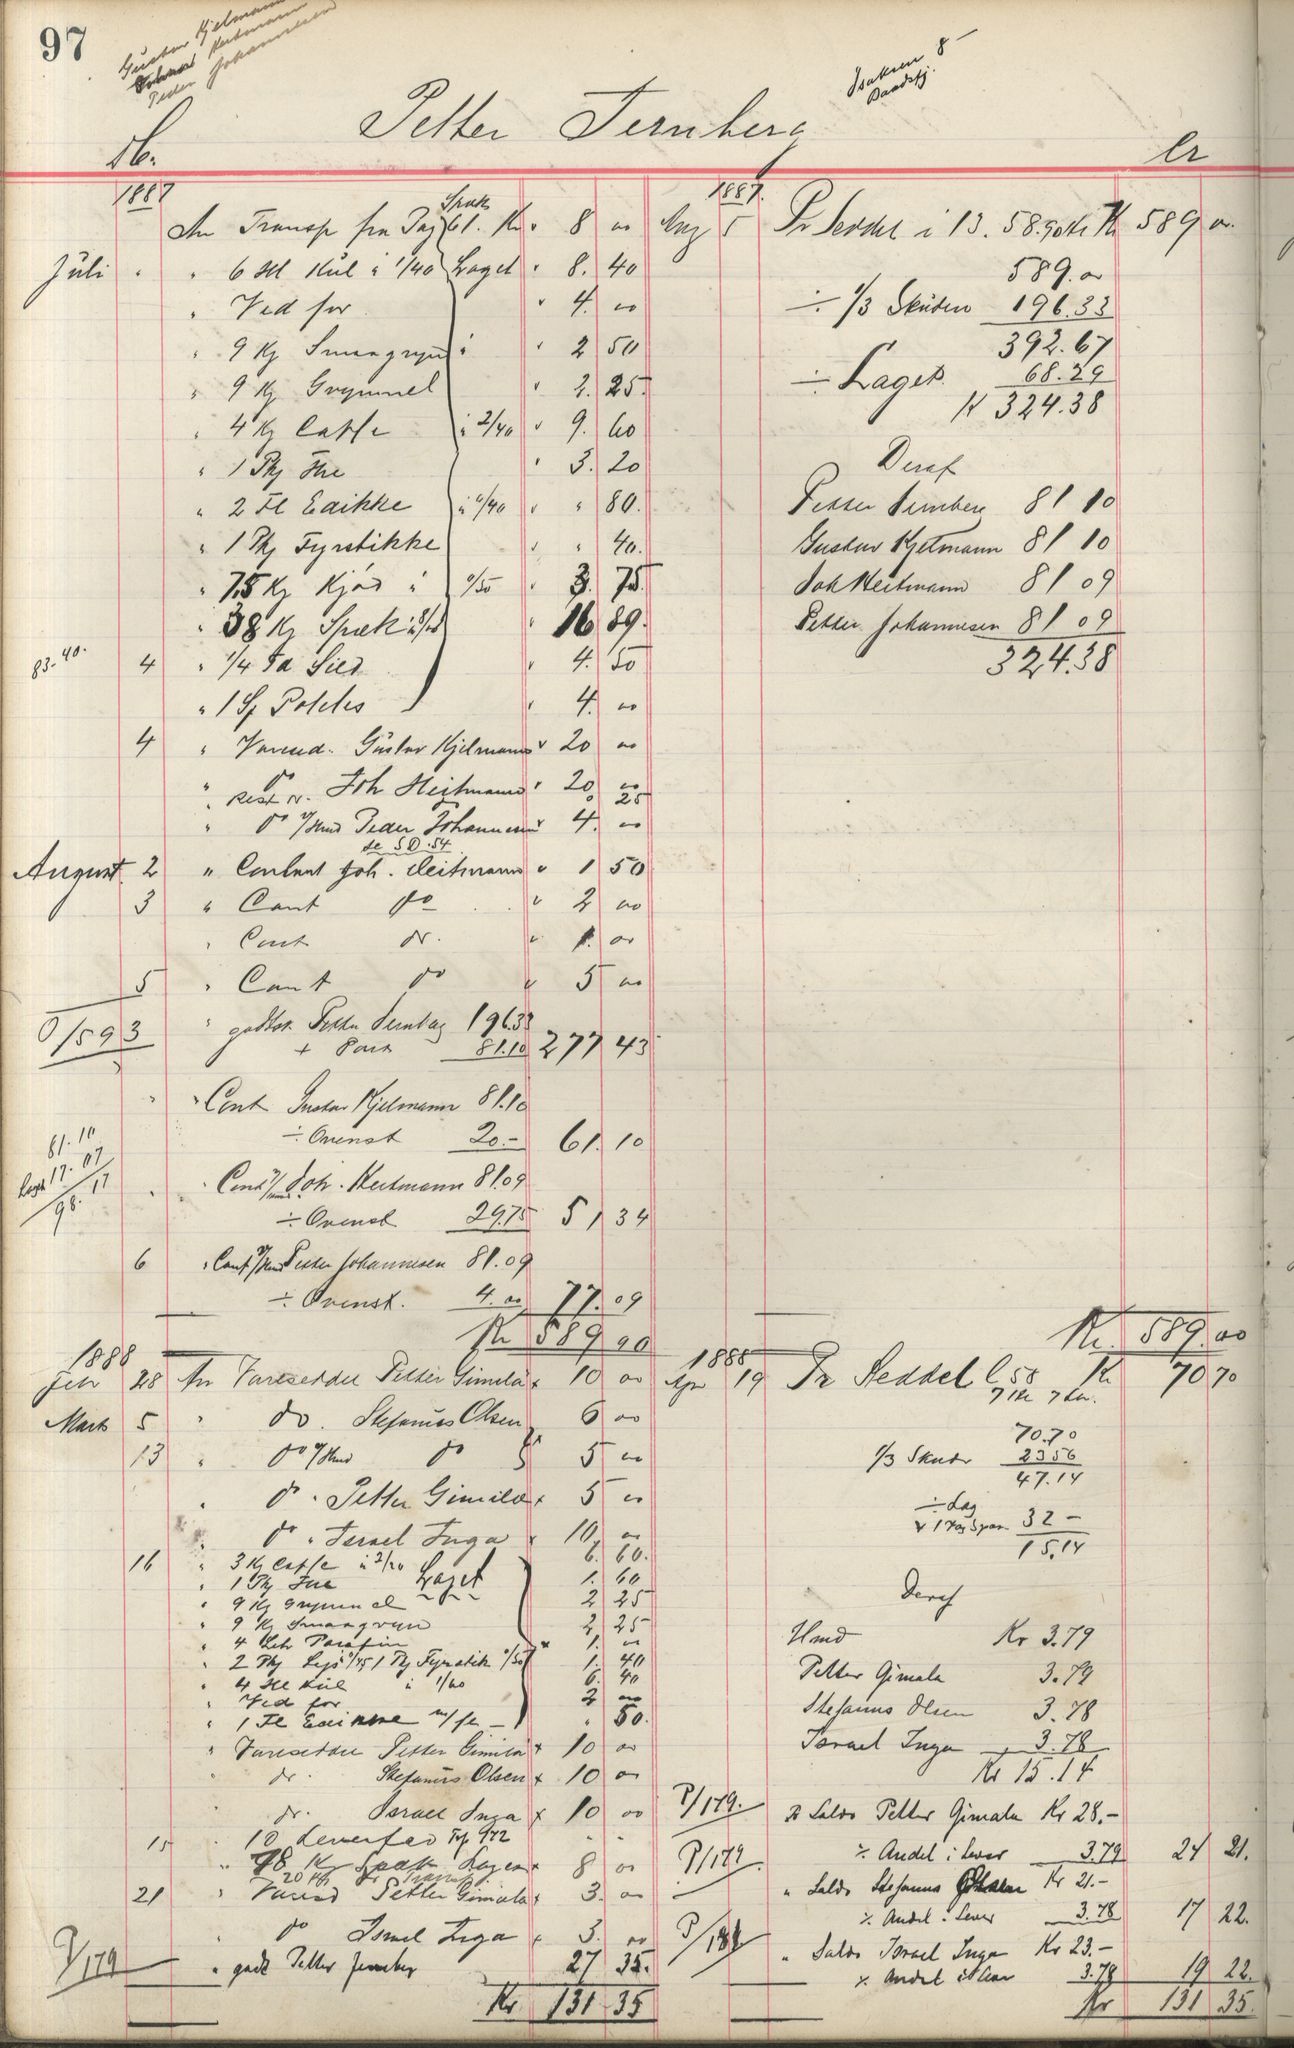 97
Gustav Kjelmann
Johannesen
Isaksen 8
Petter Ternberg
Db.
Cr
1887
An Transp fra Pag 61. Kr 8 00
Juli " " 6 Hl Kül à 1/40 Laget " 8. 40
" Ved for " 4. 00
" 9 Kg Smaagryn " 2 50
" 9 Kg Grynmel " 2. 25
" 4 Kg Caffe à 2/40 " 9. 60
" 1 Pkg The " 3. 20
" 2 Fl Edikke à "/40 " " 80.
" 1 Pkg Fyrstikke " " 40.
" 7.5 Kg Kjød à "/50 " 3. 75
" 38 Kg Spæk " 16 89.
83.40. 4 " 1/4 Td Sild " 4. 50
" 1 Sp Potetes " 4. 00
4 " Varesed. Gustav Kjelmann " 20 00
" do Joh Heitmann " 20 00
Rest 25
" do v/Hmd Peder Johannesen " 4. 00
August 2 " Contant Joh. Heitmann " 1 50
3 " Cant do " 2 00
" Cont do. " 1. 00
5 " Cant do " 5 00
O/593
" godtsk Petter Ternberg 196.33
+ Part 81.10 277 43
" " Cont Gustav Kjelmann 81.10
÷ Ovenst 20.- 61. 10
81.10
17.07
98.17
" Cont v/Hmd Joh. Heitmann 81.09
÷ Ovenst 29.75 51 34
6 " Cont v/Hmd Petter Johannesen 81.09
÷ Ovenst. 4.00 77. 09
Kr 589 00
1888
Febr 28 An Vareseddel Petter Gimila x 10 00
Marts 5 " do. Stefanus Olsen 6 00
13 " do v/Hmd do 5 00
" do " Petter Gimila x 5 00
" do " Israel Inga x 10 00
16 " 3 Kg Caffe à 2/20 6. 60.
" 1 Pkg The Laget 1. 60
" 9 Kg Grynmel 2 25
" 9 Kg Smaagryn 2 25
" 4 Litr Parafin 1. 00
" 2 Pkg Lys "/45 1 Pkg Fyrstik "/50 1. 40
" 4 Hl Kül à 1/60 6. 40
" Ved for 2 00
" 1 Fl Edikke m/fl - " 50.
" Vareseddel Petter Gimila x 10 00
" do. Stefanus Olsen x 10 00
" do. Israel Inga x 10 00
15 " 10 Leverfad " "
" 78 Kg Spæk Lagen x 8 00
21 " Varesd Petter Gimila x 3. 00
" do Israel Inga x 3. 00
P/179 " godt Petter Ternberg 27 35.
Kr 131 35
1887.
Aug 5 Pr Seddel i 13. 58.90 Kr 589 00.
589.00
÷ 1/3 Skuden 196.33
392.67
÷ Laget. 68.29
Kr 324.38
Deraf
Petter Ternberg 81 10
Gustav Kjelmann 81 10
Joh Heitmann 81 09
Petter Johannesen 81 09
324.38
Kr. 589.00
1888
Apr 19 Pr Seddel C 58 Kr 70 70
70.70
1/3 Skuden 23 56
47.14
÷ Lag
32 -
15.14
Deraf
Hmd Kr 3.79
Petter Gimala 3.79
Stefanus Olsen 3.78
Israel Inga 3.78
Kr 15.14
P/179. Pr Saldo Petter Gimala Kr 28.-
% Andel i Lever 3.79 24 21.
P/179 " Saldo Stefanus Olsen Kr 21.-
% Andel i Lever 3.78 17 22.
" Saldo Israel Inga Kr 23.-
% Andel i Lever 3.78 19 22.
Kr 131 35.